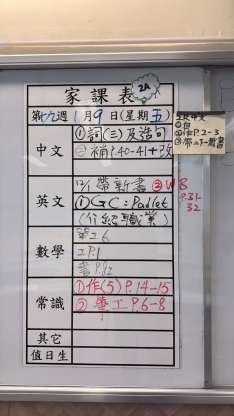 家課表 2A
第十九週 1月9日(星期五)
中文
①詞(三)及造句
②補P.40-41+改
英文
12/1 帶新書 ② WB P.31-32
①GC:Padlet
(介紹職業)
數學
筆工6
工P.1
書P.82
常識
①作(5)P.14-15
②筆工P.6-8
其它
值日生
②作P.2-3